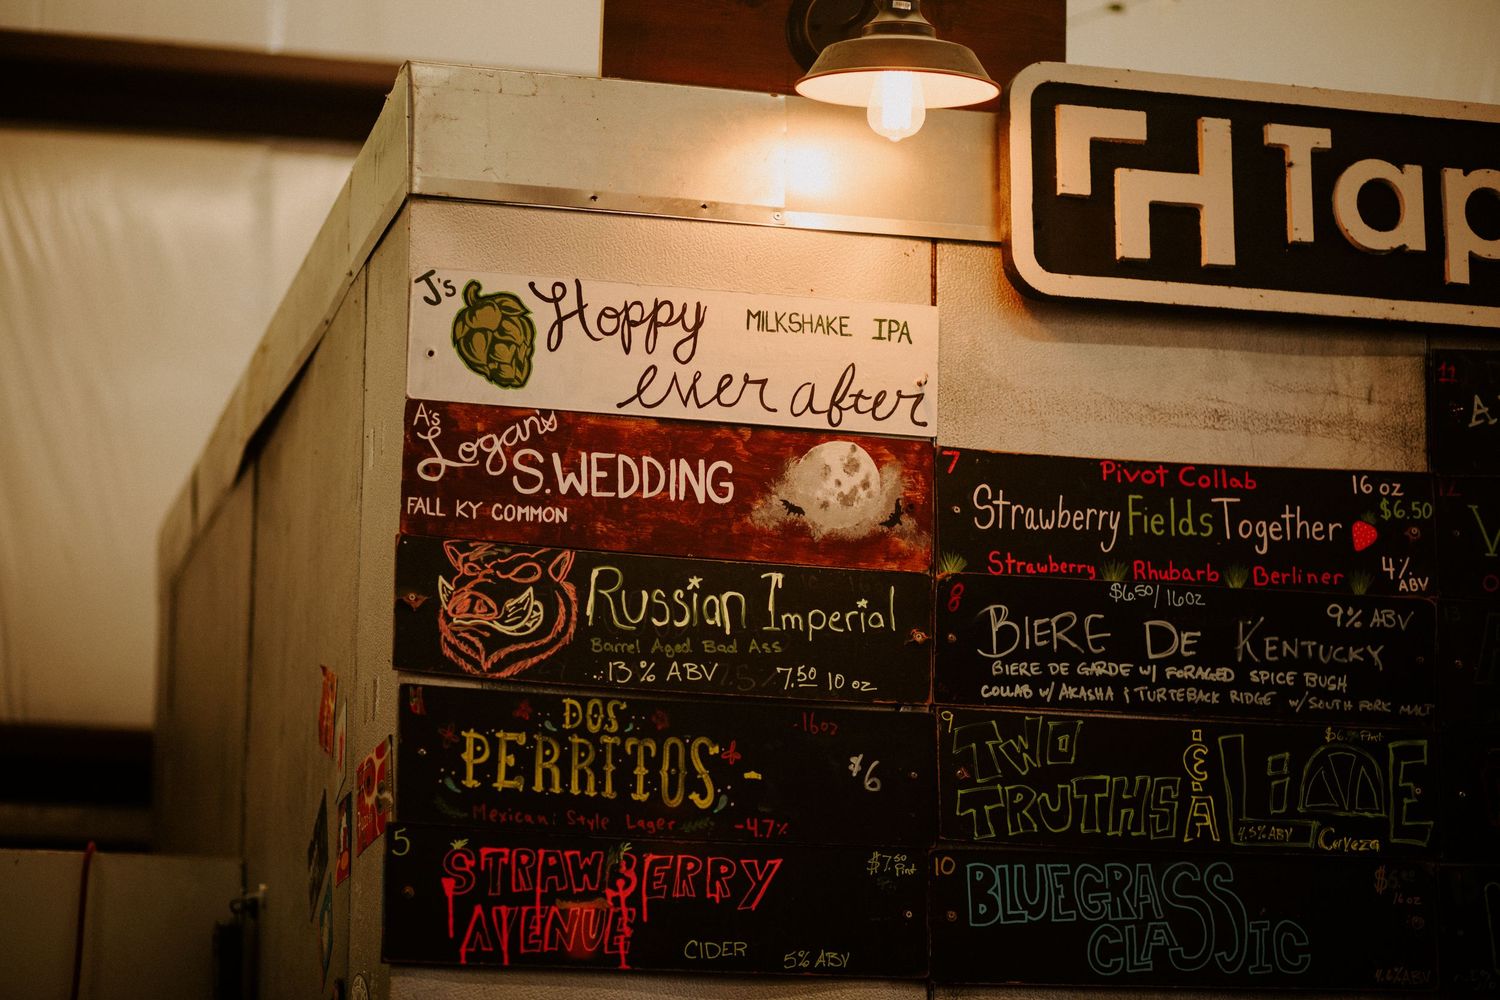 Tap
J's
Hoppy
MILKSHAKE IPA
ever after
A's
Logan's
S. WEDDING
FALL KY COMMON
Russian Imperial
Barrel Aged Bad Ass
13% ABV 7.50 10 oz
DOS
16oz
PERRITOS -
$6
Mexican Style Lager
-4.7%
5
STRAWBERRY
$7.50 Pint
AVENUE
CIDER
5% ABV
7
Pivot Collab
16 oz
$6.50
Strawberry Fields Together
Strawberry Rhubarb Berliner
4% ABV
8
$6.50/16oz
9% ABV
BIERE DE KENTUCKY
BIERE DE GARDE W/ FORAGED SPICE BUSH
COLLAB W/ AKASHA & TURTEBACK RIDGE W/ SOUTH FORK MALT
9
TWO
TRUTHS
& A
LIME
Pint
4.5% ABV
Cerveza
10
BLUEGRASS
CLASSIC
16oz
11
12